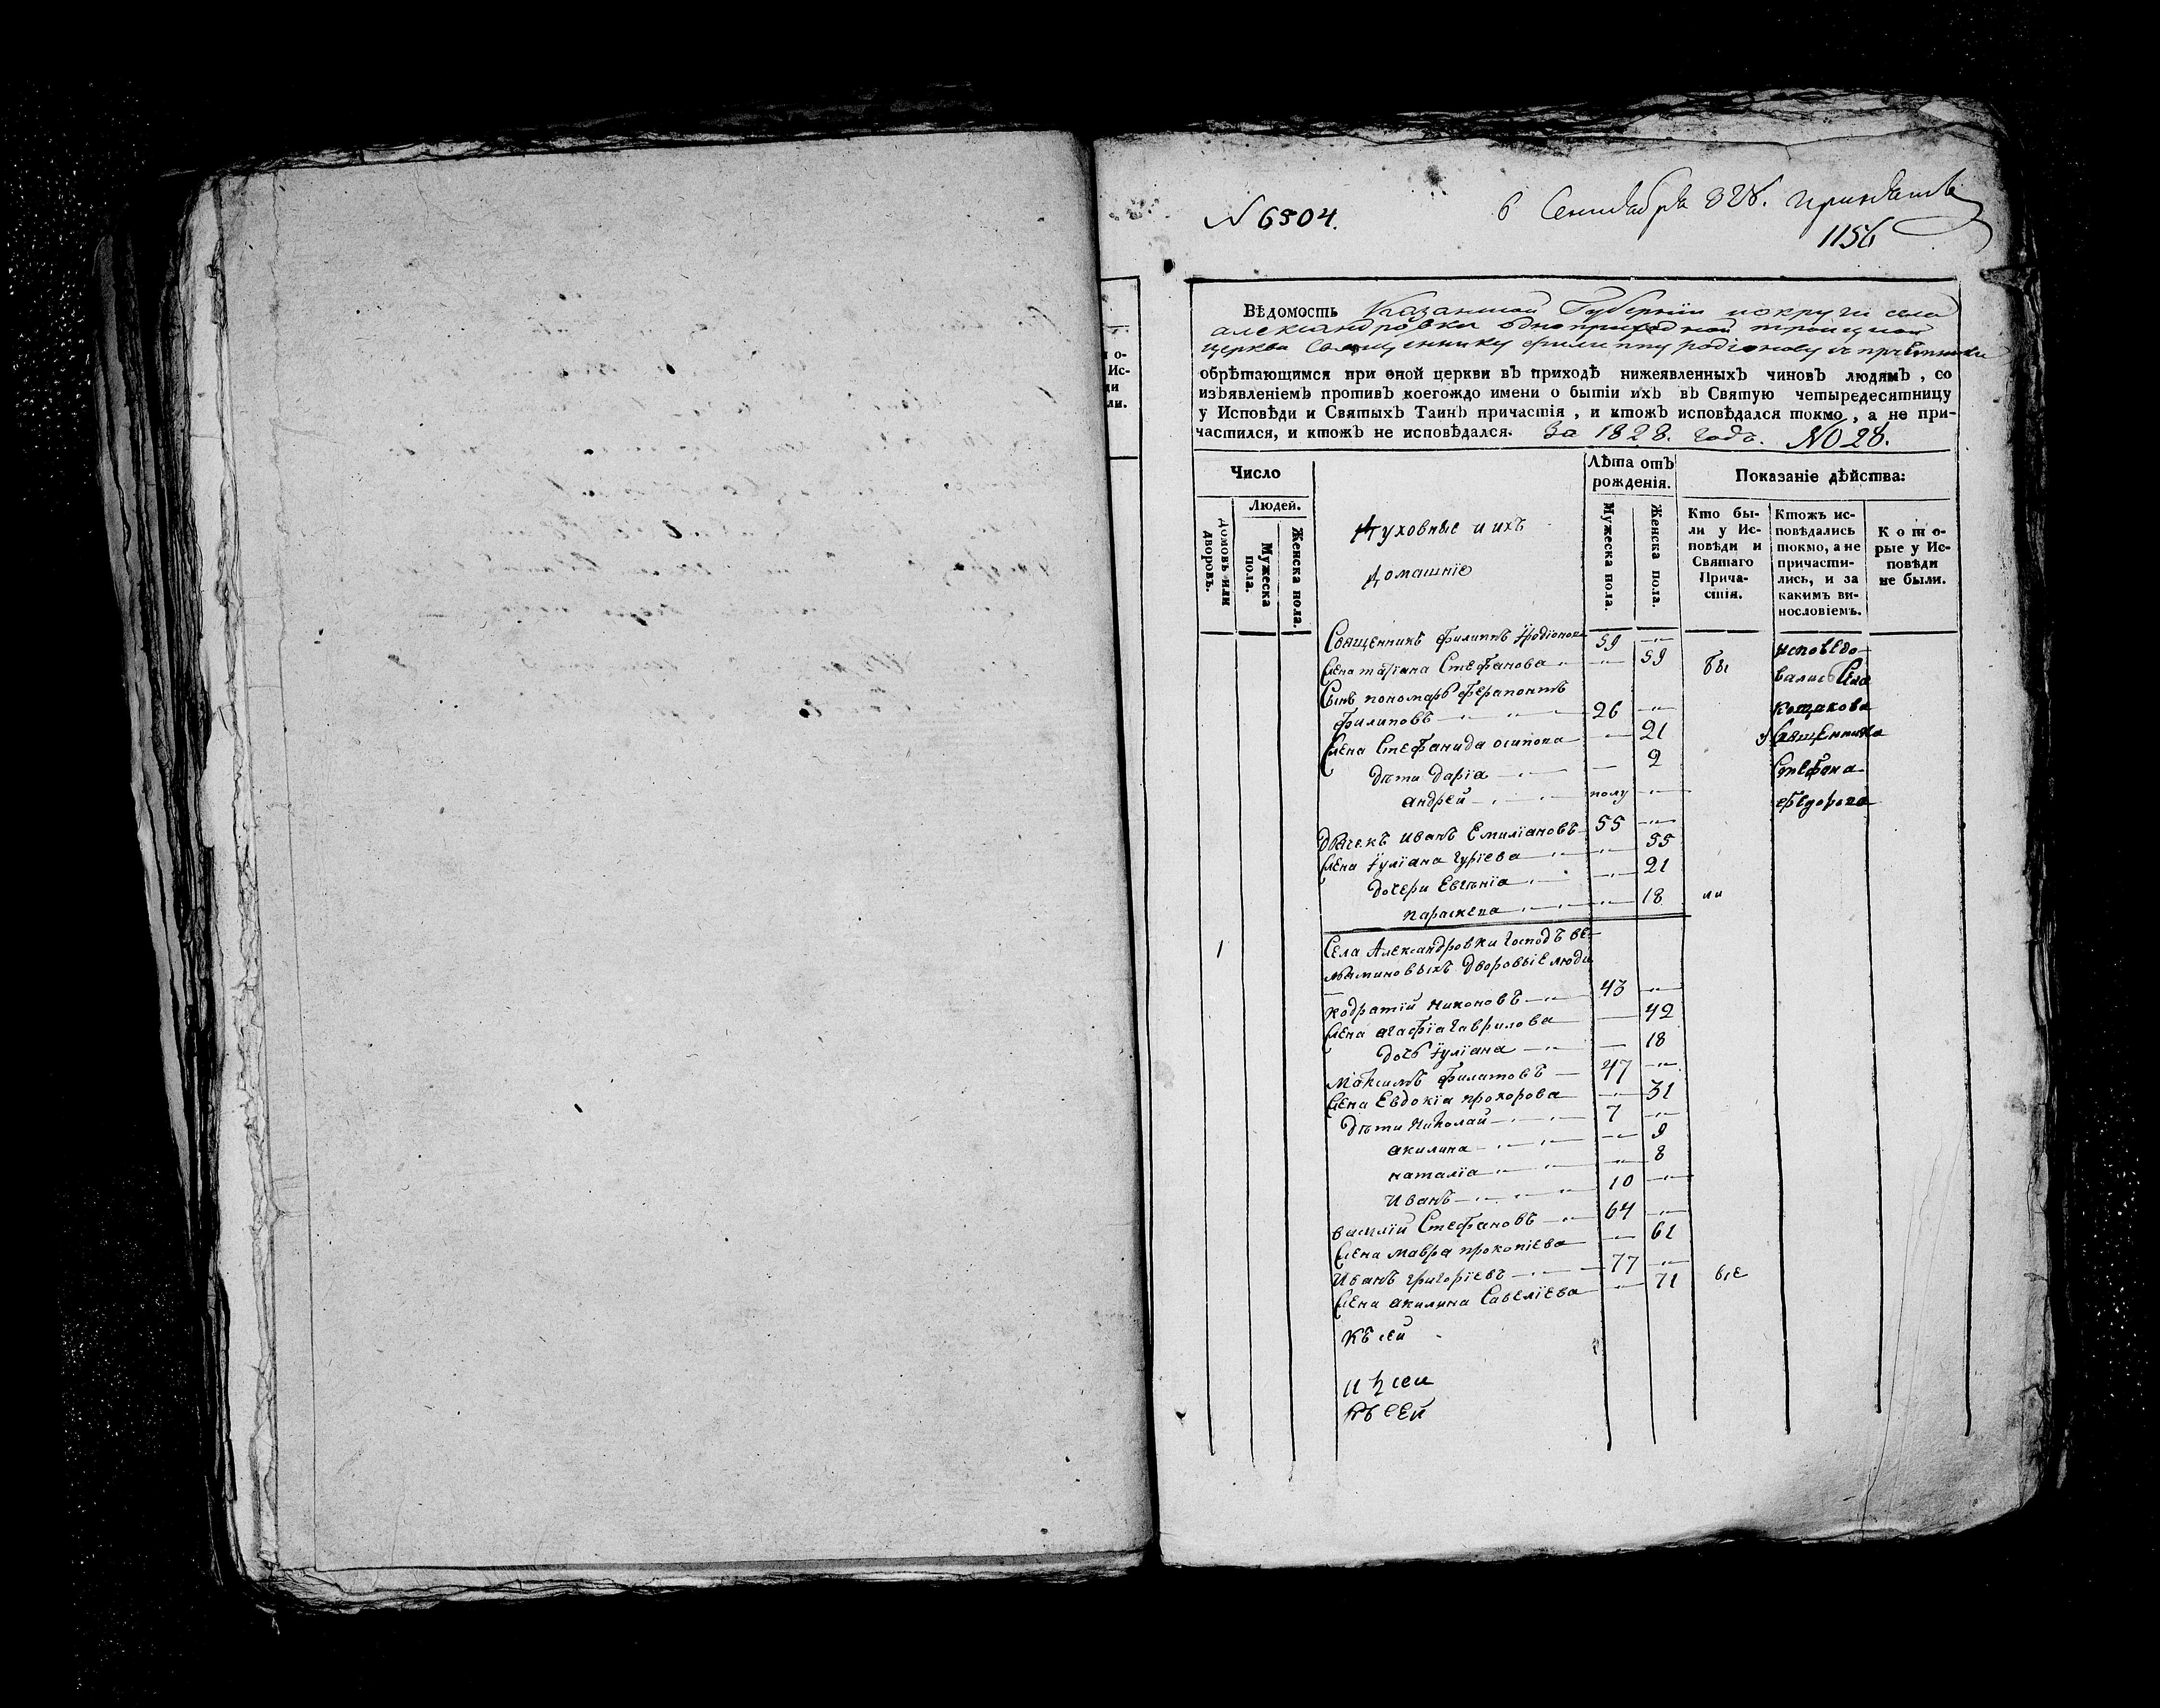 о-
Ис-
ди
ли.
N 6504.
6 Сентабра 828. принята
1156
Вѣдомость Казанской Губерніи и округи села
александровки одноприходной троицкой
церкви Священнику филиппу родіонову съ причтники
обрѣтающимся при оной церкви въ приходѣ нижеявленныхъ чиновъ людямъ, со
изъявленіемъ противъ коегождо имени о бытіи ихъ въ Святую четыредесятницу
у Исповѣди и Святыхъ Таинъ причастія, и ктожъ исповѣдался токмо, а не при-
частился, и ктожъ не исповѣдался. За 1828. годъ. NO 28.
Число
Людей.
домовъ или дворовъ.
Мужеска пола.
Женска пола.
Духовные и ихъ
домашніе
Лѣта отъ рожденія.
Мужеска пола.
Женска пола.
Показаніе дѣйства:
Кто бы-
ли у Ис-
повѣди и
Святаго
Прича-
стія.
Ктожъ ис-
повѣдались
токмо, а не
причасти-
лись, и за
какимъ ви-
нословіемъ.
Кото-
рые у Ис-
повѣди
не были.
Священникъ филиппъ родіоновъ 59
Жена татіана Стефанова 59
Сынъ пономарь ферапонтъ
филиповъ 26
Жена Стефанида осипова 21
дѣти Дарiа 2
андрей полу
дьячекъ иванъ Емиліановъ 55
Жена іуліана гуріева 55
дочери Евгѣніа 21
параскева 18
бы
ли
исповедо-
вались Села
кощакова
у Священника
Стефана
федорова
1
Села Александровки господъ ве-
льяминовыхъ дворовые люди
кодратій никоновъ 43
Жена агафіа гаврилова 42
дочь іуліана 18
максимъ филатовъ 47
Жена Евдокіа прохорова 31
дѣти николай 7
акилина 9
наталіа 8
иванъ 10
василій Стефановъ 64
Жена мавра прокопіева 61
иванъ григоріевъ 77
Жена акилина Савеліева 71
вѣ
къ сей
къ сей